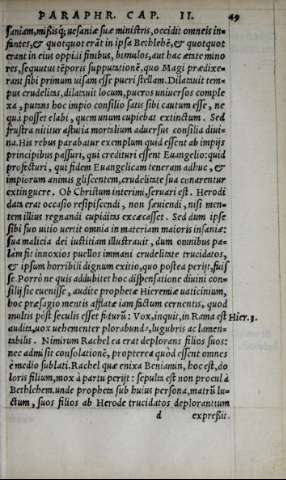 PARAPHR. CAP. II. 49
saniam, missisq; uesaniæ suæ ministris, occidit omneis in-
fantes, & quotquot erāt in ipsa Bethlehē, & quotquot
erant in eius oppidi finibus, bimulos, aut hac ætate mino
res, sequutus tēporis supputationē, quo Magi prædixe-
rant sibi primum uisam esse pueri stellam. Dilatauit tem-
pus crudelitas, dilatauit locum, pueros uniuersos comple
xa, putans hoc impio consilio satis sibi cautum esse, ne
qua posset elabi, quem unum cupiebat extinctum. Sed
frustra nititur astutia mortalium aduersus consilia diui-
na. His rebus parabatur exemplum quid essent ab impijs
principibus passuri, qui credituri essent Euangelio: quid
profecturi, qui fidem Euangelicam teneram adhuc, &
impiorum animis gliscentem, crudelitate sua conarentur
extinguere. Ob Christum interimi, seruari est. Herodi
data erat occasio resipiscendi, non sæuiendi, nisi men-
tem illius regnandi cupiditas excæcasset. Sed dum ipse
sibi suo uitio uertit omnia in materiam maioris insaniæ:
sua malicia dei iustitiam illustrauit, dum omnibus pa-
lam fit innoxios puellos immani crudelitate trucidatos,
& ipsum horribili dignum exitio, quo postea perijt, fuis
se. Porrò ne quis addubitet hoc dispensatione diuini con-
silij sic euenisse, audite prophetæ Hieremiæ uaticinium,
hoc præsagio mentis afflatæ iam factum cernentis, quod
multis pòst seculis esset futurū: Vox, inquit, in Rama est Hier. 3.
audita, uox uehementer plorandi, lugubris ac lamen-
tabilis. Nimirum Rachel ea erat deplorans filios suos:
nec admisit consolationē, propterea quòd essent omnes
è medio sublati. Rachel quæ enixa Beniamin, hoc est, do
loris filium, mox à partu perijt: sepulta est non procul à
Bethlehem. unde propheta sub huius persona, matrū lu-
ctum, suos filios ab Herode trucidatos deplorantium
d expressit.